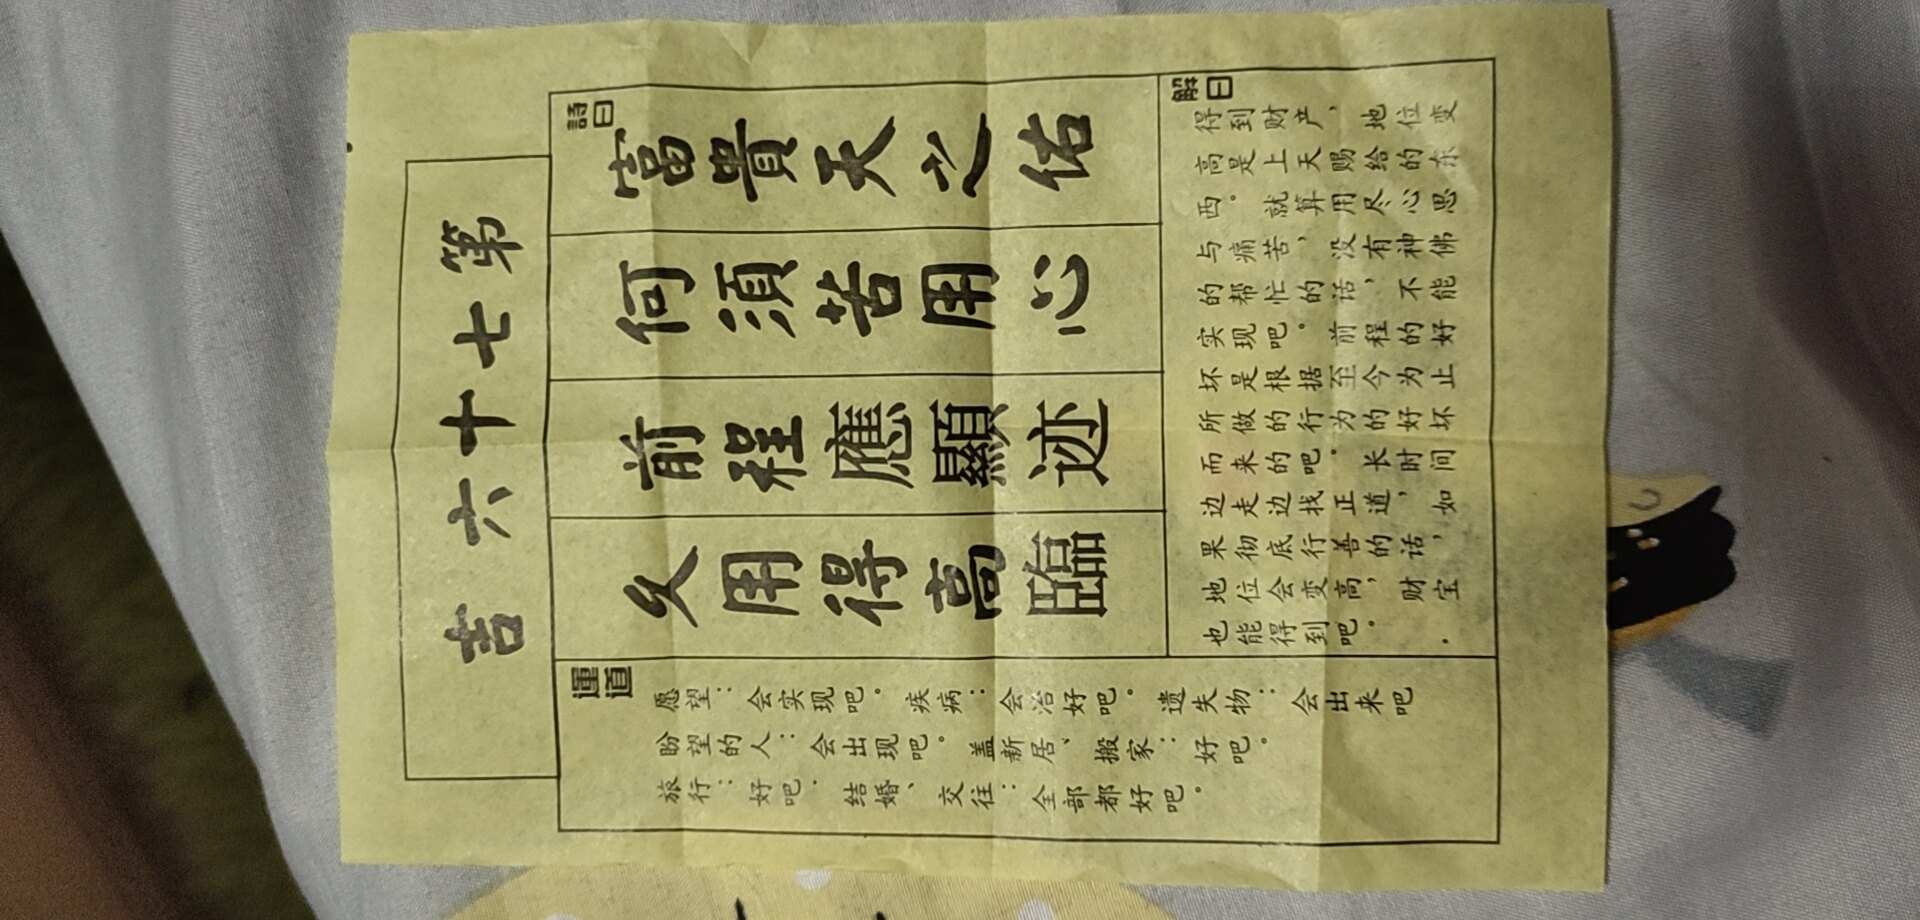 第七十六 吉
詩曰
富貴天之佑
何須苦用心
前程應顯迹
久用得高臨
解曰
得到财产，地位变
高是上天赐给的东
西。就算用尽心思
与痛苦，没有神佛
的帮忙的话，不能
实现吧。前程的好
坏是根据至今为止
所做的行为的好坏
而来的吧。长时间
边走边找正道，如
果彻底行善的话，
地位会变高，财宝
也能得到吧。
運道
愿望：会实现吧。疾病：会治好吧。遗失物：会出来吧
盼望的人：会出现吧。盖新居、搬家：好吧。
旅行：好吧．结婚、交往：全部都好吧。